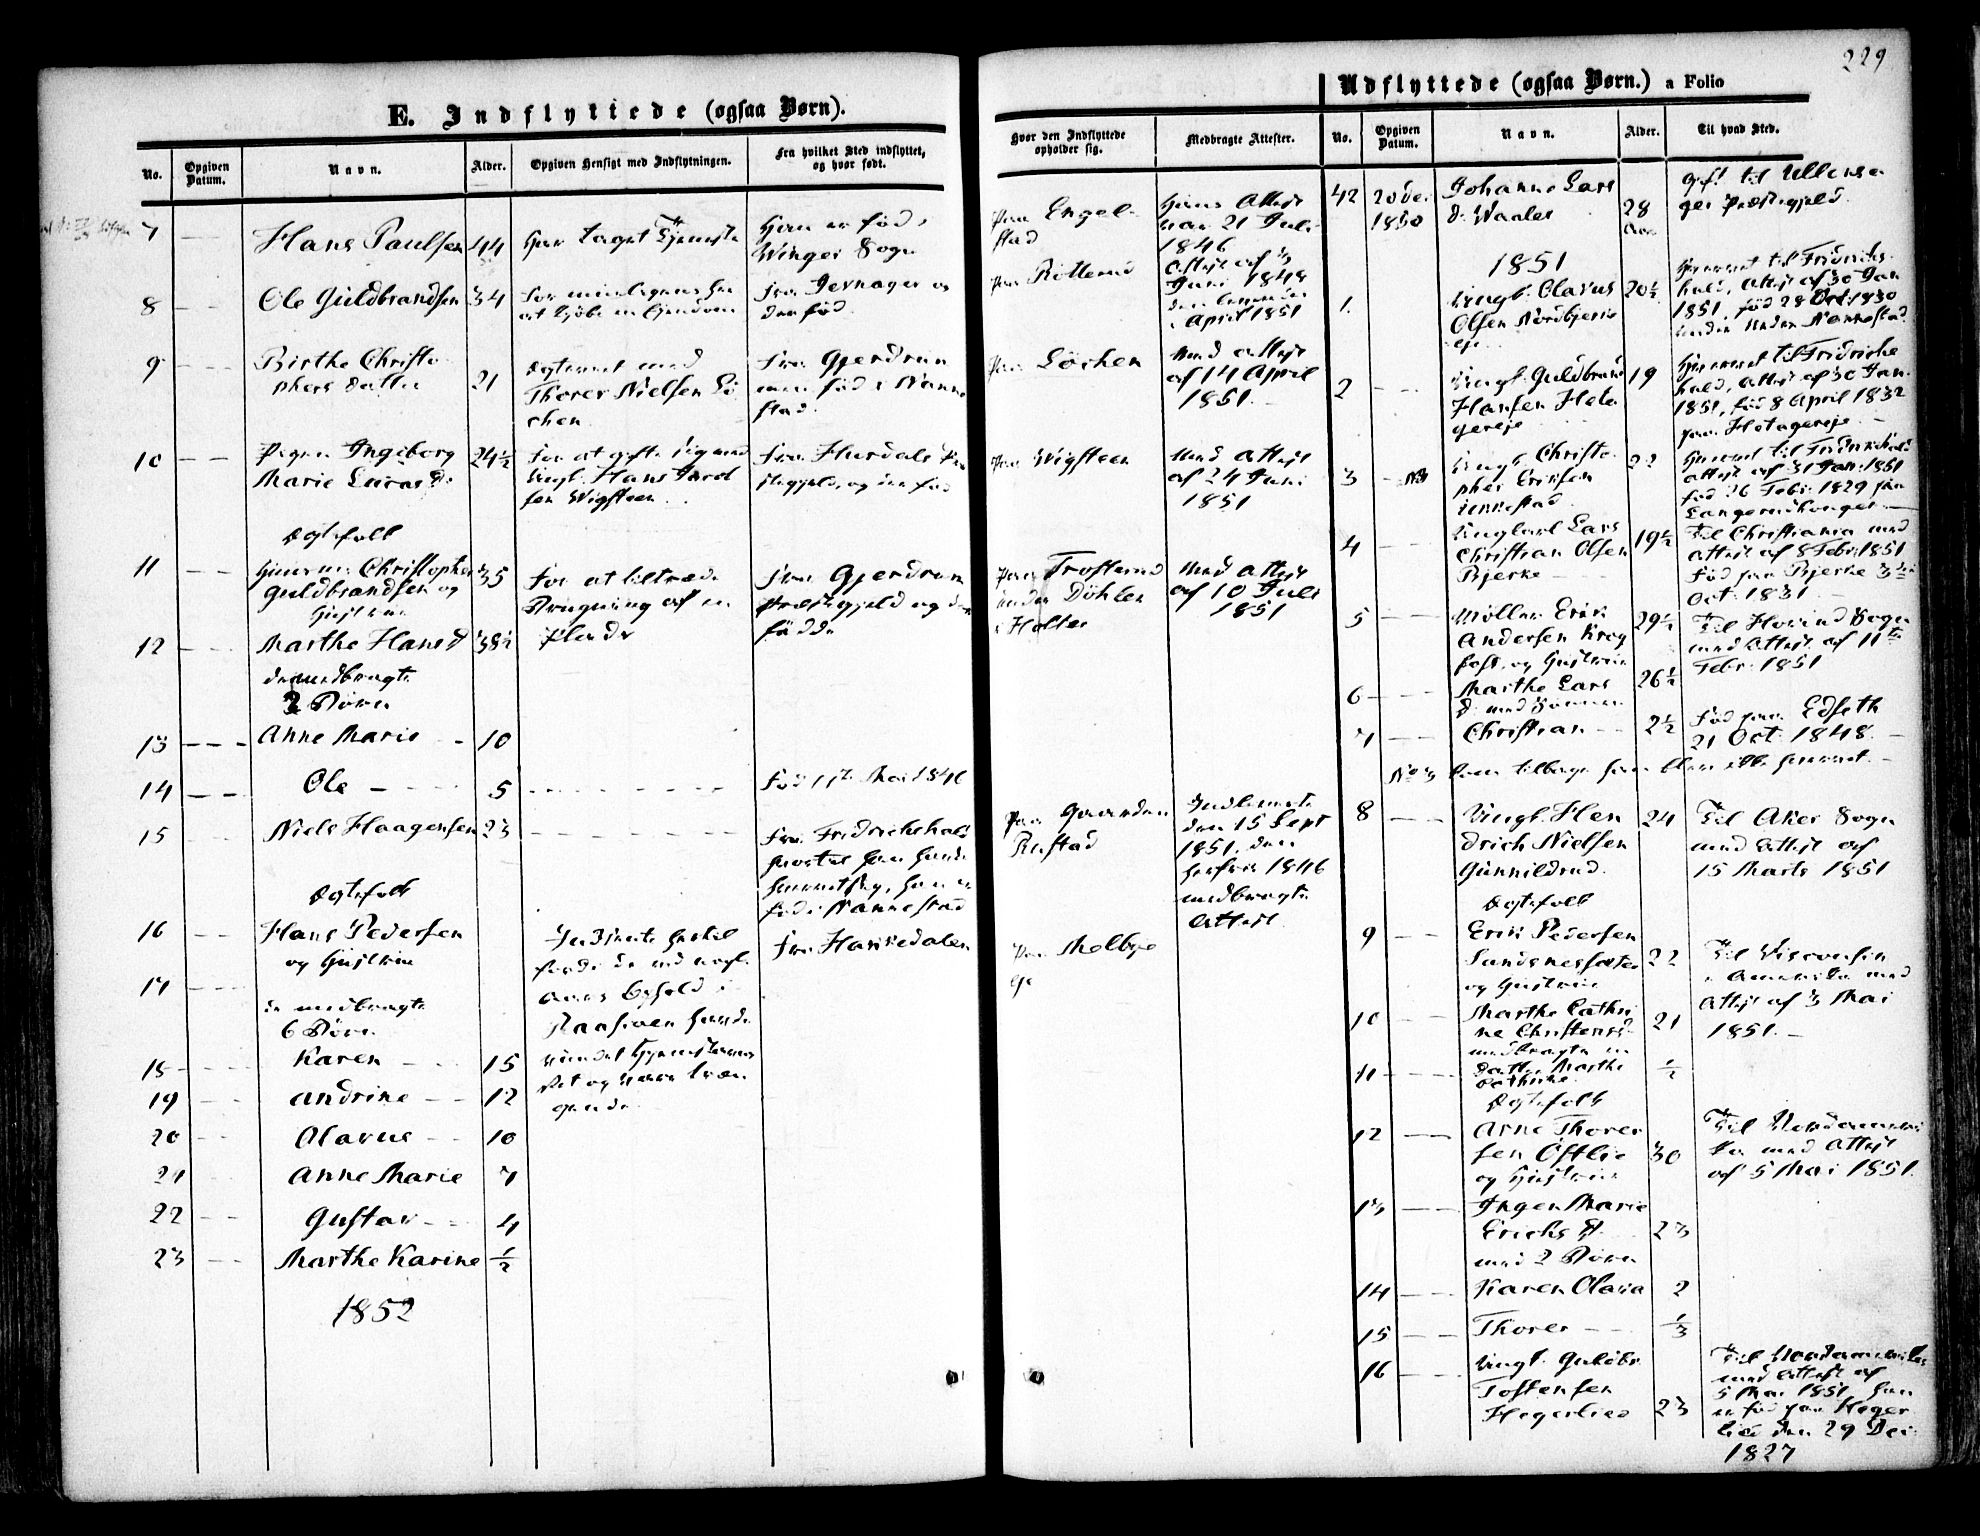 229
E. Indflyttede (ogsaa Børn).
No.
Opgiven Datum.
Navn.
Alder.
Opgiven Hensigt med Indflytningen.
Fra hvilket Sted indflyttet, og hvor født.
Hvor den Indflyttede opholder sig.
Medbragte Attester.
7
Hans Paulsen
44
har taget Tjeneste
Han er fød i
Winger Sogn
paa Engel-
stad
Hans Attest
var 21 Juli
1846
8
Ole Guldbrandsen
34
fra Jevnager og
der fød
paa Rotterud
Attest af 3
Juni 1848
April 1851
9
Birthe Christo
phers datter
21
Ægteviet med
Thorer Nielsen Lö
chen
fra Gjerdrum
men fød i Nanne
stad
paa Löchen
Med attest
af 14 April
1851
10
Pigen Ingeborg
Marie Larsd.
24½
for at gifte sig med
Ungk. Hans Jacob
sen Wigsteen
fra Hurdals Præ
stegjeld, og der fød
paa Wigsteen
Med attest
af 24 Juni
1851
Ægtefolk
11
Christopher
Guldbrandsen og
Hustrue
35
for at tiltræde
Brugning af en
Plads
fra Gjerdrum
Præstegjeld og der
fødde
paa Trosterud
under Döhlen
i Holter
Med attest
af 10 Juli
1851
12
Marthe Hansd
38½
de medbragte
2 Børn
13
Anne Marie
10
14
Ole
5
fød 11te Mai 1846
15
Niels Haagensen
23
fra Fredrikshald
hvortil han havde
fød i Nannestad
paa Gaarden
Rustad
Indkomst
den 15 Sept
1851, den
herfra 1846
medbragte
Attest
Ægtefolk
16
Hans Pedersen
og Hustrue
fra Harriedalen
paa Melbye
Eje
17
de medbragte
6 Børn
Aars Ophold i
18
Karen
15
19
Andrine
12
20
Olavus
10
21
Anne Marie
7
22
Gustav
4
23
Marthe Karine
½
1852
Udflyttede (ogsaa Børn.) a Folio
No.
Opgiven Datum.
Navn.
Alder.
Til hvad Sted.
42
20 Dec
1850
Johanne Lars
d. Waaler
28
Aar
gift til Ullensa
ger Præstegjeld.
1851
1.
Ungk. Olavus
Olsen Nordbjerke
eje
20½
til Fridrichs
hald, attest af 30 Jan
1851, fød 28 Oct. 1830
under Nannestad
2
Ungk. Guldbrand
Hansen Hola
gereje
19
til Fridrichs
hald, attest af 30 Jan
1851, fød 8 April 1832
paa Holagereje
3
NB
Ungk. Christo
pher Eriksen
22
til Fridrichshald
attest af 31 Jan. 1851
fød 26 Febr. 1829 paa
4
Ungkarl Lars
Christian Olsen
Bjerke
19½
Til Christiania med
attest af 8 Febr 1851
fød paa Bjerke
Oct. 1831
5
Möller Erik
Andersen Krog
og Hustrue
29½
Til Hovind Sogn
med Attest af 11te
Febr. 1851
6
Marthe Lars
d. med Sønnen
26½
7
Christian
2½
fød paa Edseth
21 Oct. 1848
No 3 kom tilbage
8
Ungk. Hen
drich Nielsen
Gunnildrud
24
Til Aker Sogn
med Attest af
15 Marts 1851
Ægtefolk
9
Erik Pedersen
Sandsnessæter
og Hustrue
22
Til Wisconsin
i Amerika med
Attest af 3 Mai
1851
10
Marthe Cathri
ne Christensd
medbragte en
21
11
Datter Marthe
Cathrine
½
Ægtefolk
12
Arne Thorer
sen Östlie
og Hustrue
30
Til Nordameri
ka med Attest
af 5 Mai 1851
13
Ingen Marie
Erichs D.
med 2 Børn
23
14
Karen Olava
2
15
Thorer
⅓
16
Ungk. Guldbr.
Tostensen
Hegerlied
23
Til Nordamerika
med Attest af
5 Mai 1851, han
er fød paa Heger
lied den 29 Dec
1827